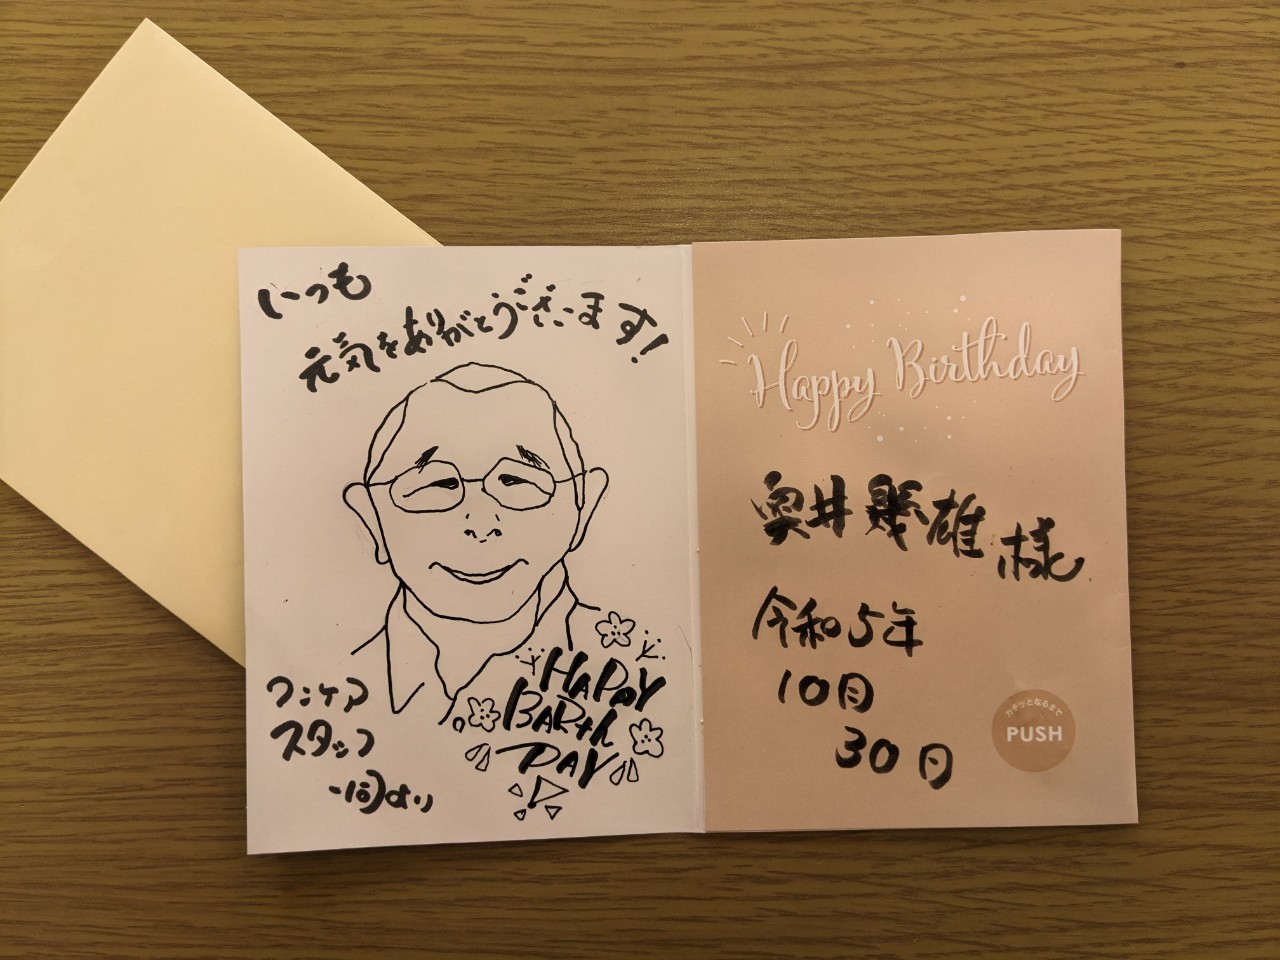 いつも
元気をありがとうございます!
ワンケア
スタッフ
一同より
HAPPY
BARth
DAY
!
Happy Birthday
奥井幾雄様
令和5年
10月
30日
カチッとなるまで
PUSH